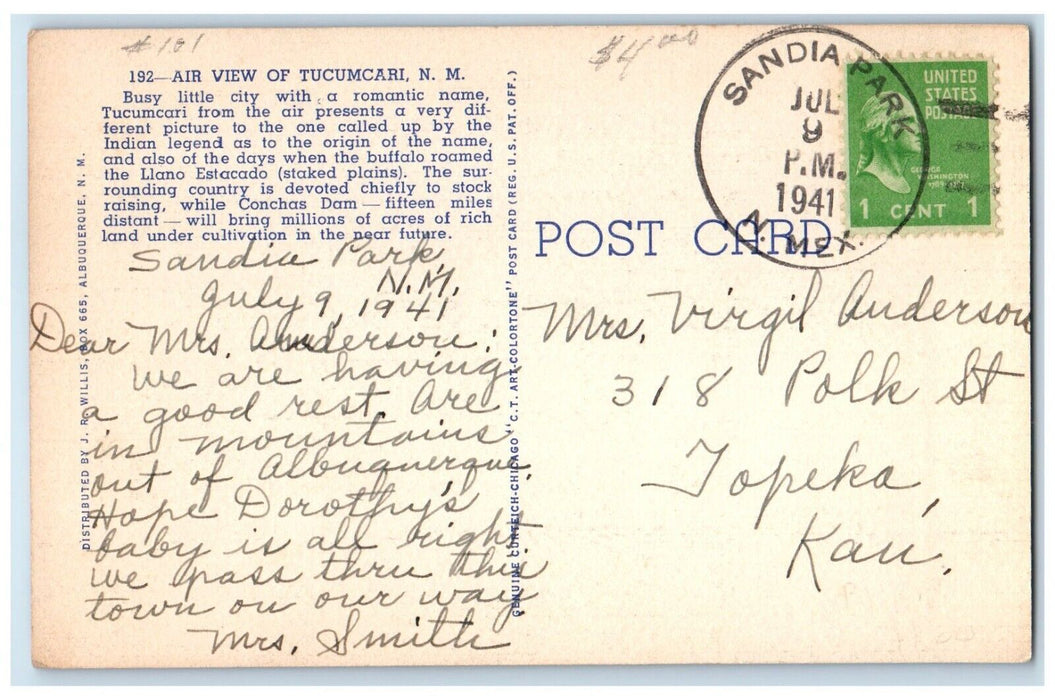 #101
$4.00
192—AIR VIEW OF TUCUMCARI, N. M.
Busy little city with a romantic name,
Tucumcari from the air presents a very dif-
ferent picture to the one called up by the
Indian legend as to the origin of the name,
and also of the days when the buffalo roamed
the Llano Estacado (staked plains). The sur-
rounding country is devoted chiefly to stock
raising, while Conchas Dam — fifteen miles
distant — will bring millions of acres of rich
land under cultivation in the near future.
DISTRIBUTED BY J. R. WILLIS, BOX 665, ALBUQUERQUE, N. M.
GENUINE CURTEICH-CHICAGO "C.T. ART-COLORTONE" POST CARD (REG. U.S. PAT. OFF.)
Sandia Park,
N.M.
July 9, 1941
Dear Mrs. Anderson:
We are having
a good rest. Are
in mountains
out of Albuquerque.
Hope Dorothy's
baby is all right
we pass thru this
town on our way
Mrs. Smith
POST CARD
SANDIA PARK
JUL
9
P.M.
1941
N. MEX.
UNITED
STATES
POSTAGE
GEORGE
WASHINGTON
1789-1797
1 CENT 1
Mrs. Virgil Anderson
318 Polk St
Topeka,
Kan.